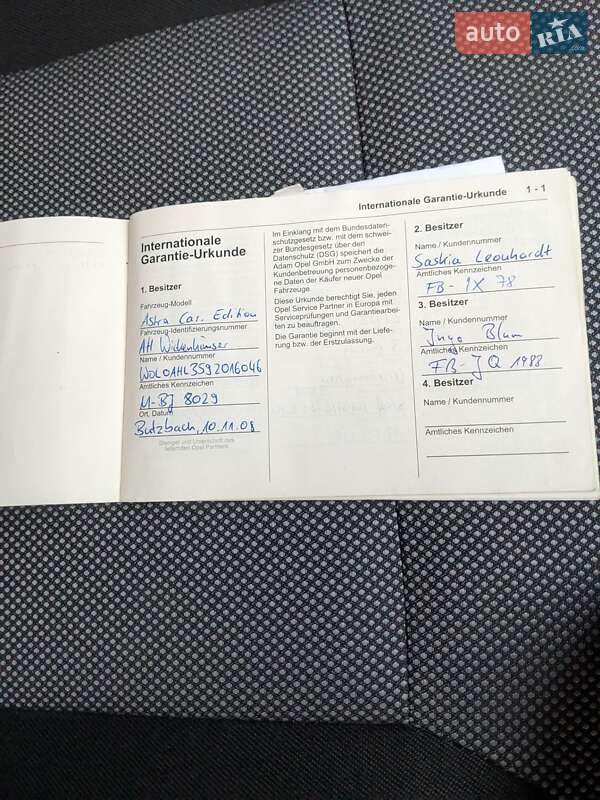 auto RIA.com
Internationale Garantie-Urkunde 1 - 1
Internationale
Garantie-Urkunde
1. Besitzer
Fahrzeug-Modell
Astra Car. Edition
Fahrzeug-Identifizierungsnummer
AH Wickenhäuser
Name / Kundennummer
W0L0AHL3592016046
Amtliches Kennzeichen
M-BJ 8029
Ort, Datum
Butzbach, 10.11.08
Stempel und Unterschrift des
liefernden Opel Partners
Im Einklang mit dem Bundesdaten-
schutzgesetz bzw. mit dem schwei-
zer Bundesgesetz über den
Datenschutz (DSG) speichert die
Adam Opel GmbH zum Zwecke der
Kundenbetreuung personenbezoge-
ne Daten der Käufer neuer Opel
Fahrzeuge.
Diese Urkunde berechtigt Sie, jeden
Opel Service Partner in Europa mit
Serviceprüfungen und Garantiearbei-
ten zu beauftragen.
Die Garantie beginnt mit der Liefe-
rung bzw. der Erstzulassung.
2. Besitzer
Name / Kundennummer
Saskia Leonhardt
Amtliches Kennzeichen
FB-IX 78
3. Besitzer
Name / Kundennummer
Ingo Blum
Amtliches Kennzeichen
FB-JQ 1988
4. Besitzer
Name / Kundennummer
Amtliches Kennzeichen